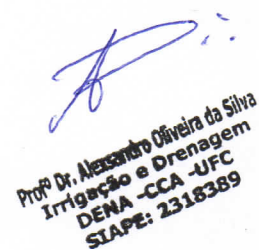 Profº Dr. Alexsandro Oliveira da Silva
Irrigação e Drenagem
DENA -CCA -UFC
SIAPE: 2318389